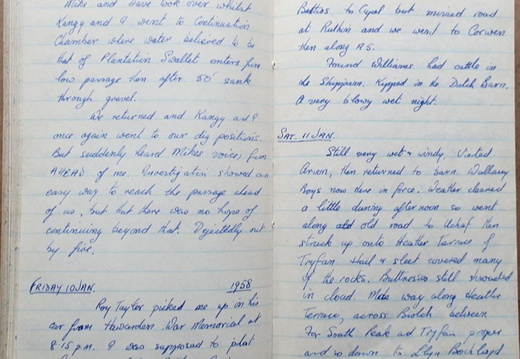 Mike and Dave took over whilst
Kangy and I went to Continuation
Chamber where water believed to be
that of Plantation Swallet enters from
low passage then after 50' sank
through gravel.
We returned and Kangy and I
once again went to our dig positions.
But suddenly heard Mikes voices from
AHEAD of me. Investigation showed an
easy way to reach the passage ahead
of us, but that there was no hope of
continuing beyond that. Dejectedly out
by five.
FRIDAY 10 JAN. 1958
Roy Taylor picked me up in his
car from Hawarden War Memorial at
8.15 p.m. I was supposed to pilot
to Capel but missed road
at Ruthin and we went to Corwen
then along A5.
Found Williams had cattle in
the Shippum. Kipped in the Dutch Barn.
A very blowy wet night.
SAT. 11 JAN.
Still very wet & windy. Visited
Arwen, then returned to barn. Wallasey
Boys now there in force. Weather cleared
a little during afternoon so went
along old road to then
struck up onto Heather Terrace of
Tryfan. Hail & sleet covered many
of the rocks. Buttresses still shrouded
in cloud. Made way along Heather
Terrace, across Bwlch between
Far South Peak and Tryfan proper
and so down to Llyn Bochlwyd